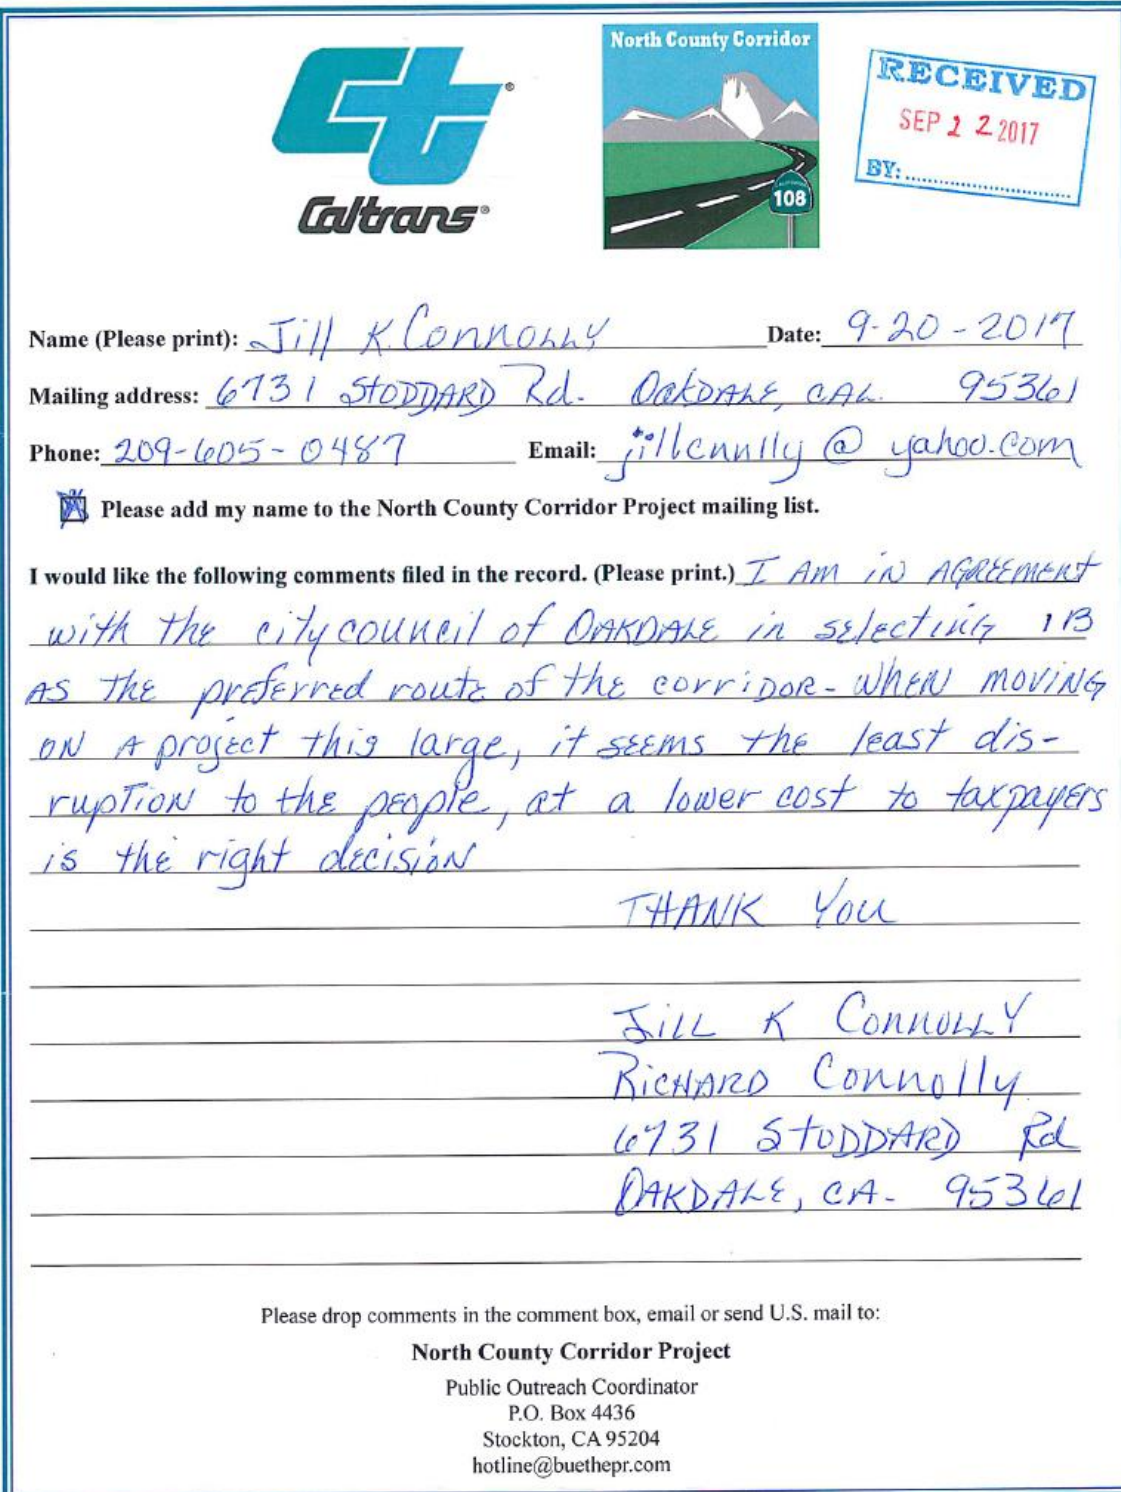 Caltrans®
North County Corridor
CALIFORNIA
108
RECEIVED
SEP 2 2 2017
BY:
Name (Please print): Jill K. Connolly Date: 9-20-2017
Mailing address: 6731 STODDARD Rd. OAKDALE, CAL. 95361
Phone: 209-605-0487 Email: jillcnnlly@yahoo.com
Please add my name to the North County Corridor Project mailing list.
I would like the following comments filed in the record. (Please print.) I AM iN AGREEMENT
with the city council of OAKDALE in selecting 1B
AS the preferred route of the corridor - WHEN MOVING
ON A project this large, it seems the least dis-
ruption to the people, at a lower cost to taxpayers
is the right decision
THANK You
Jill K Connolly
RICHARD Connolly
6731 STODDARD Rd
OAKDALE, CA. 95361
Please drop comments in the comment box, email or send U.S. mail to:
North County Corridor Project
Public Outreach Coordinator
P.O. Box 4436
Stockton, CA 95204
hotline@buethepr.com